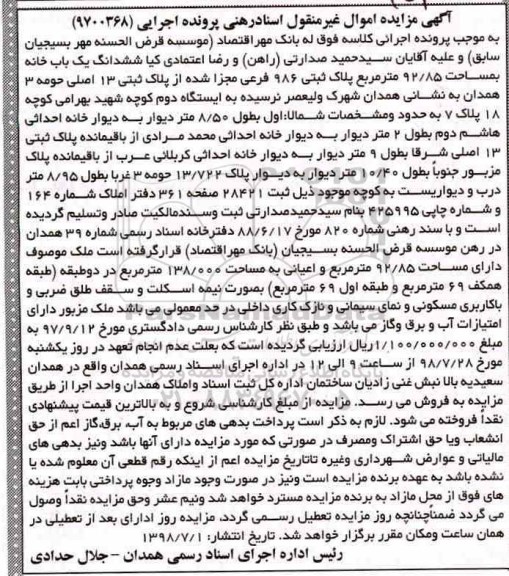 آگهی مزایده اموال غیرمنقول اسنادرهنی پرونده اجرایی (۹۷۰۰۳۶۸)
به موجب پرونده اجرائی کلاسه فوق له بانک مهراقتصاد (موسسه قرض الحسنه مهر بسیجیان
سابق) و علیه آقایان سیدحمید صدارتی (راهن) و رضا اعتمادی کیا ششدانگ یک باب خانه
بمساحت ۹۲/۸۵ مترمربع پلاک ثبتی ۹۸۶ فرعی مجزا شده از پلاک ثبتی ۱۳ اصلی حومه ۳
همدان به نشانی همدان شهرک ولیعصر نرسیده به ایستگاه دوم کوچه شهید بهرامی کوچه
۱۸ پلاک ۷ به حدود ومشخصات شمالا:اول بطول ۸/۵۰ متر دیوار به دیوار خانه احداثی
هاشم دوم بطول ۲ متر دیوار به دیوار خانه احداثی محمد مرادی از باقیمانده پلاک ثبتی
۱۳ اصلی شرقا بطول ۹ متر دیوار به دیوار خانه احداثی کربلائی عرب از باقیمانده پلاک
مزبور جنوباً بطول ۱۰/۴۰ متر دیوار به دیوار پلاک ۱۳/۷۲۲ حومه ۳ غربا بطول ۸/۹۵ متر
درب و دیواریست به کوچه موجود ذیل ثبت ۲۸۴۲۱ صفحه ۳۶۱ دفتر املاک شماره ۱۶۴
و شماره چاپی ۲۳۵۹۹۵ بنام سیدحمیدصدارتی ثبت وسندمالکیت صادر وتسلیم گردیده
است و با سند رهنی شماره ۸۲۰ مورخ ۸۸/۶/۱۷ دفترخانه اسناد رسمی شماره ۳۹ همدان
در رهن موسسه قرض الحسنه بسیجیان (بانک مهراقتصاد) قرارگرفته است ملک موصوف
دارای مساحت ۹۲/۸۵ مترمربع و اعیانی به مساحت ۱۳۸/۰۰۰ مترمربع در دوطبقه (طبقه
همکف ۶۹ مترمربع و طبقه اول ۶۹ مترمربع) بصورت نیمه اسکلت و سقف طلق ضربی و
باکاربری مسکونی و نمای سیمانی و نازک کاری داخلی در حد معمولی می باشد ملک مزبور دارای
امتیازات آب و برق وگاز می باشد و طبق نظر کارشناس رسمی دادگستری مورخ ۹۷/۹/۱۲ به
مبلغ ۱/۱۰۰/۰۰۰/۰۰۰ریال ارزیابی گردیده است که بعلت عدم انجام تعهد در روز یکشنبه
مورخ ۹۸/۷/۲۸ از ساعت ۹ الی ۱۲ در اداره اجرای اسناد رسمی همدان واقع در همدان
سعیدیه بالا نبش غنی زادیان ساختمان اداره کل ثبت اسناد واملاک همدان واحد اجرا از طریق
مزایده به فروش می رسد. مزایده از مبلغ کارشناسی شروع و به بالاترین قیمت پیشنهادی
نقداً فروخته می شود. لازم به ذکر است پرداخت بدهی های مربوط به آب، برق،گاز اعم از حق
انشعاب ویا حق اشتراک ومصرف در صورتی که مورد مزایده دارای آنها باشد ونیز بدهی های
مالیاتی و عوارض شهرداری وغیره تاتاریخ مزایده اعم از اینکه رقم قطعی آن معلوم شده یا
نشده باشد به عهده برنده مزایده است ونیز در صورت وجود مازاد وجوه پرداختی بابت هزینه
های فوق از محل مازاد به برنده مزایده مسترد خواهد شد ونیم عشر وحق مزایده نقداً وصول
می گردد ضمناًچنانچه روز مزایده تعطیل رسمی گردد، مزایده روز اداری بعد از تعطیلی در
همان ساعت ومکان مقرر برگزار خواهد شد. تاریخ انتشار: ۱۳۹۸/۷/۱
رئیس اداره اجرای اسناد رسمی همدان -جلال حدادی